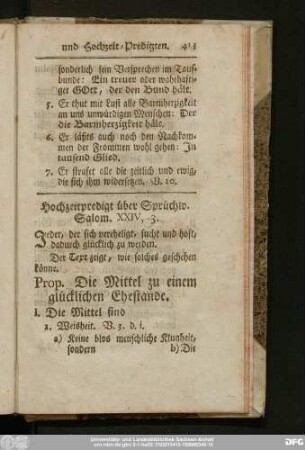 und Hochzeit-Predigten. 415
sonderlich sein Versprechen im Tauf-
bunde: Ein treuer oder wahrhafti-
ger GOtt, der den Bund hält.
5. Er thut mit Lust alle Barmherzigkeit
an uns unwürdigen Menschen: Der
die Barmherzigkeit hält.
6. Er läßts auch noch den Nachkom-
men der Frommen wohl gehen: In
tausend Glied.
7. Er strafet alle die zeitlich und ewig,
die sich ihm widersetzen. V. 10.
Hochzeitpredigt über Sprüchw.
Salom. XXIV, 3.
Jeder, der sich verehligt, sucht und hoft,
dadurch glücklich zu werden.
Der Text zeigt, wie solches geschehen
könne.
Prop. Die Mittel zu einem
glücklichen Ehestande.
I. Die Mittel sind
1. Weisheit. V. 3. d. i.
a) Keine blos menschliche Klugheit,
sondern b) Die
Universitäts- und Landesbibliothek Sachsen-Anhalt
DFG